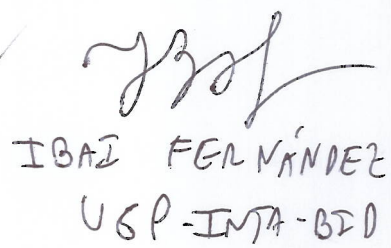 IBAI FERNÁNDEZ
UGP-INTA-BID